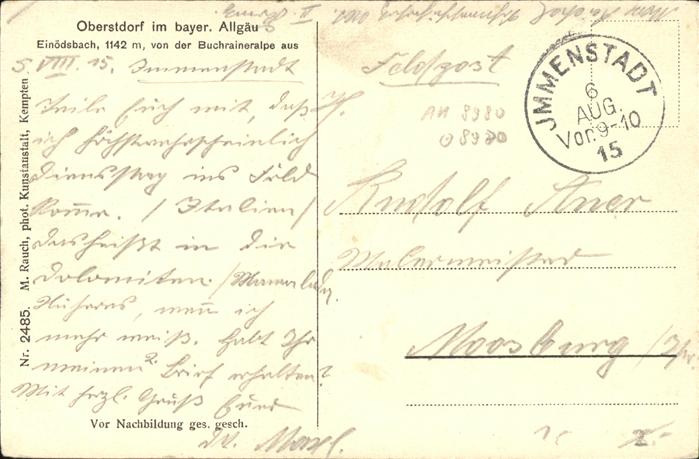 Oberstdorf im bayer. Allgäu
Einödsbach, 1142 m, von der Buchraineralpe aus
5. VIII. 15. Immenstadt
Teile Euch mit, daß
ich höchstwahrscheinlich
Dienstag ins Feld
komme. / Italien /
das heißt in die
Dolomiten.
Näheres, wenn ich
mehr weiß. Habt Ihr
meinen 2. Brief erhalten?
Mit hrzl. Gruß Euer
Vor Nachbildung ges. gesch.
Nr. 2485. M. Rauch, phot. Kunstanstalt, Kempten
Feldpost
JMMENSTADT
6
AUG.
Vor. 9-10
15
AH 8980
H.
Rudolf
Malermeister
Moosburg